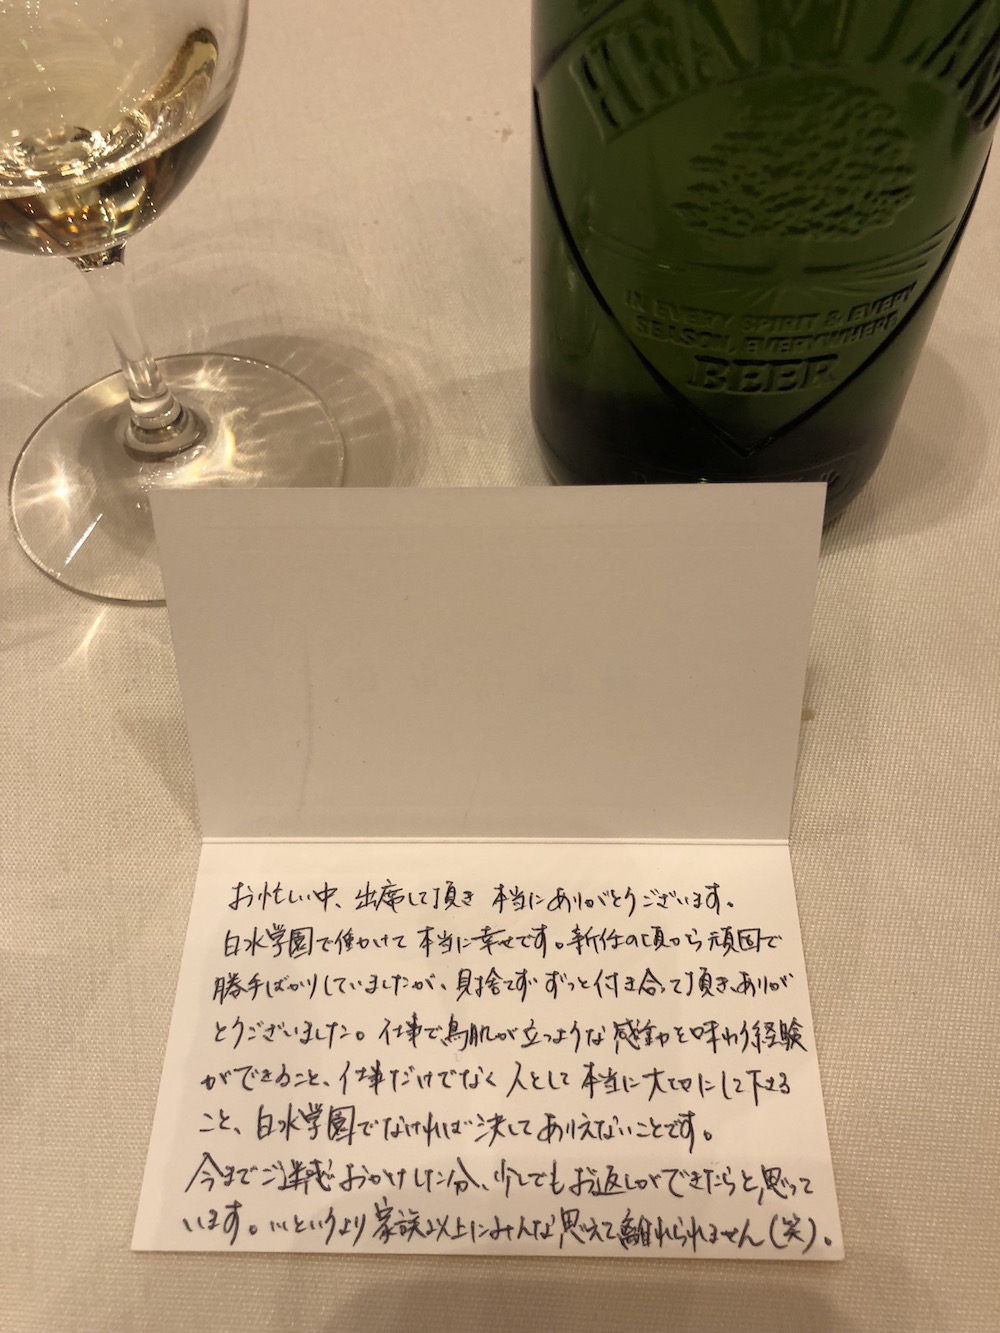 HEARTLAN
IN EVERY SPIRIT & EVERY
SEASON, EVERYWHERE
BEER
お忙しい中、出席して頂き 本当にありがとうございます。
白水学園で働かけて 本当に幸せです。新任の頃から頑固で
勝手ばかりしていましたが、見捨てず ずっと付き合って頂き、ありが
とうございました。仕事で鳥肌が立つような感動を味わう経験
ができること、仕事だけでなく 人として 本当に大切にして下さる
こと、白水学園でなければ決してありえないことです。
今までご迷惑おかけした分、少しでもお返しができたらと思って
います。…というより家族以上にみんな思えて離れられません(笑)。